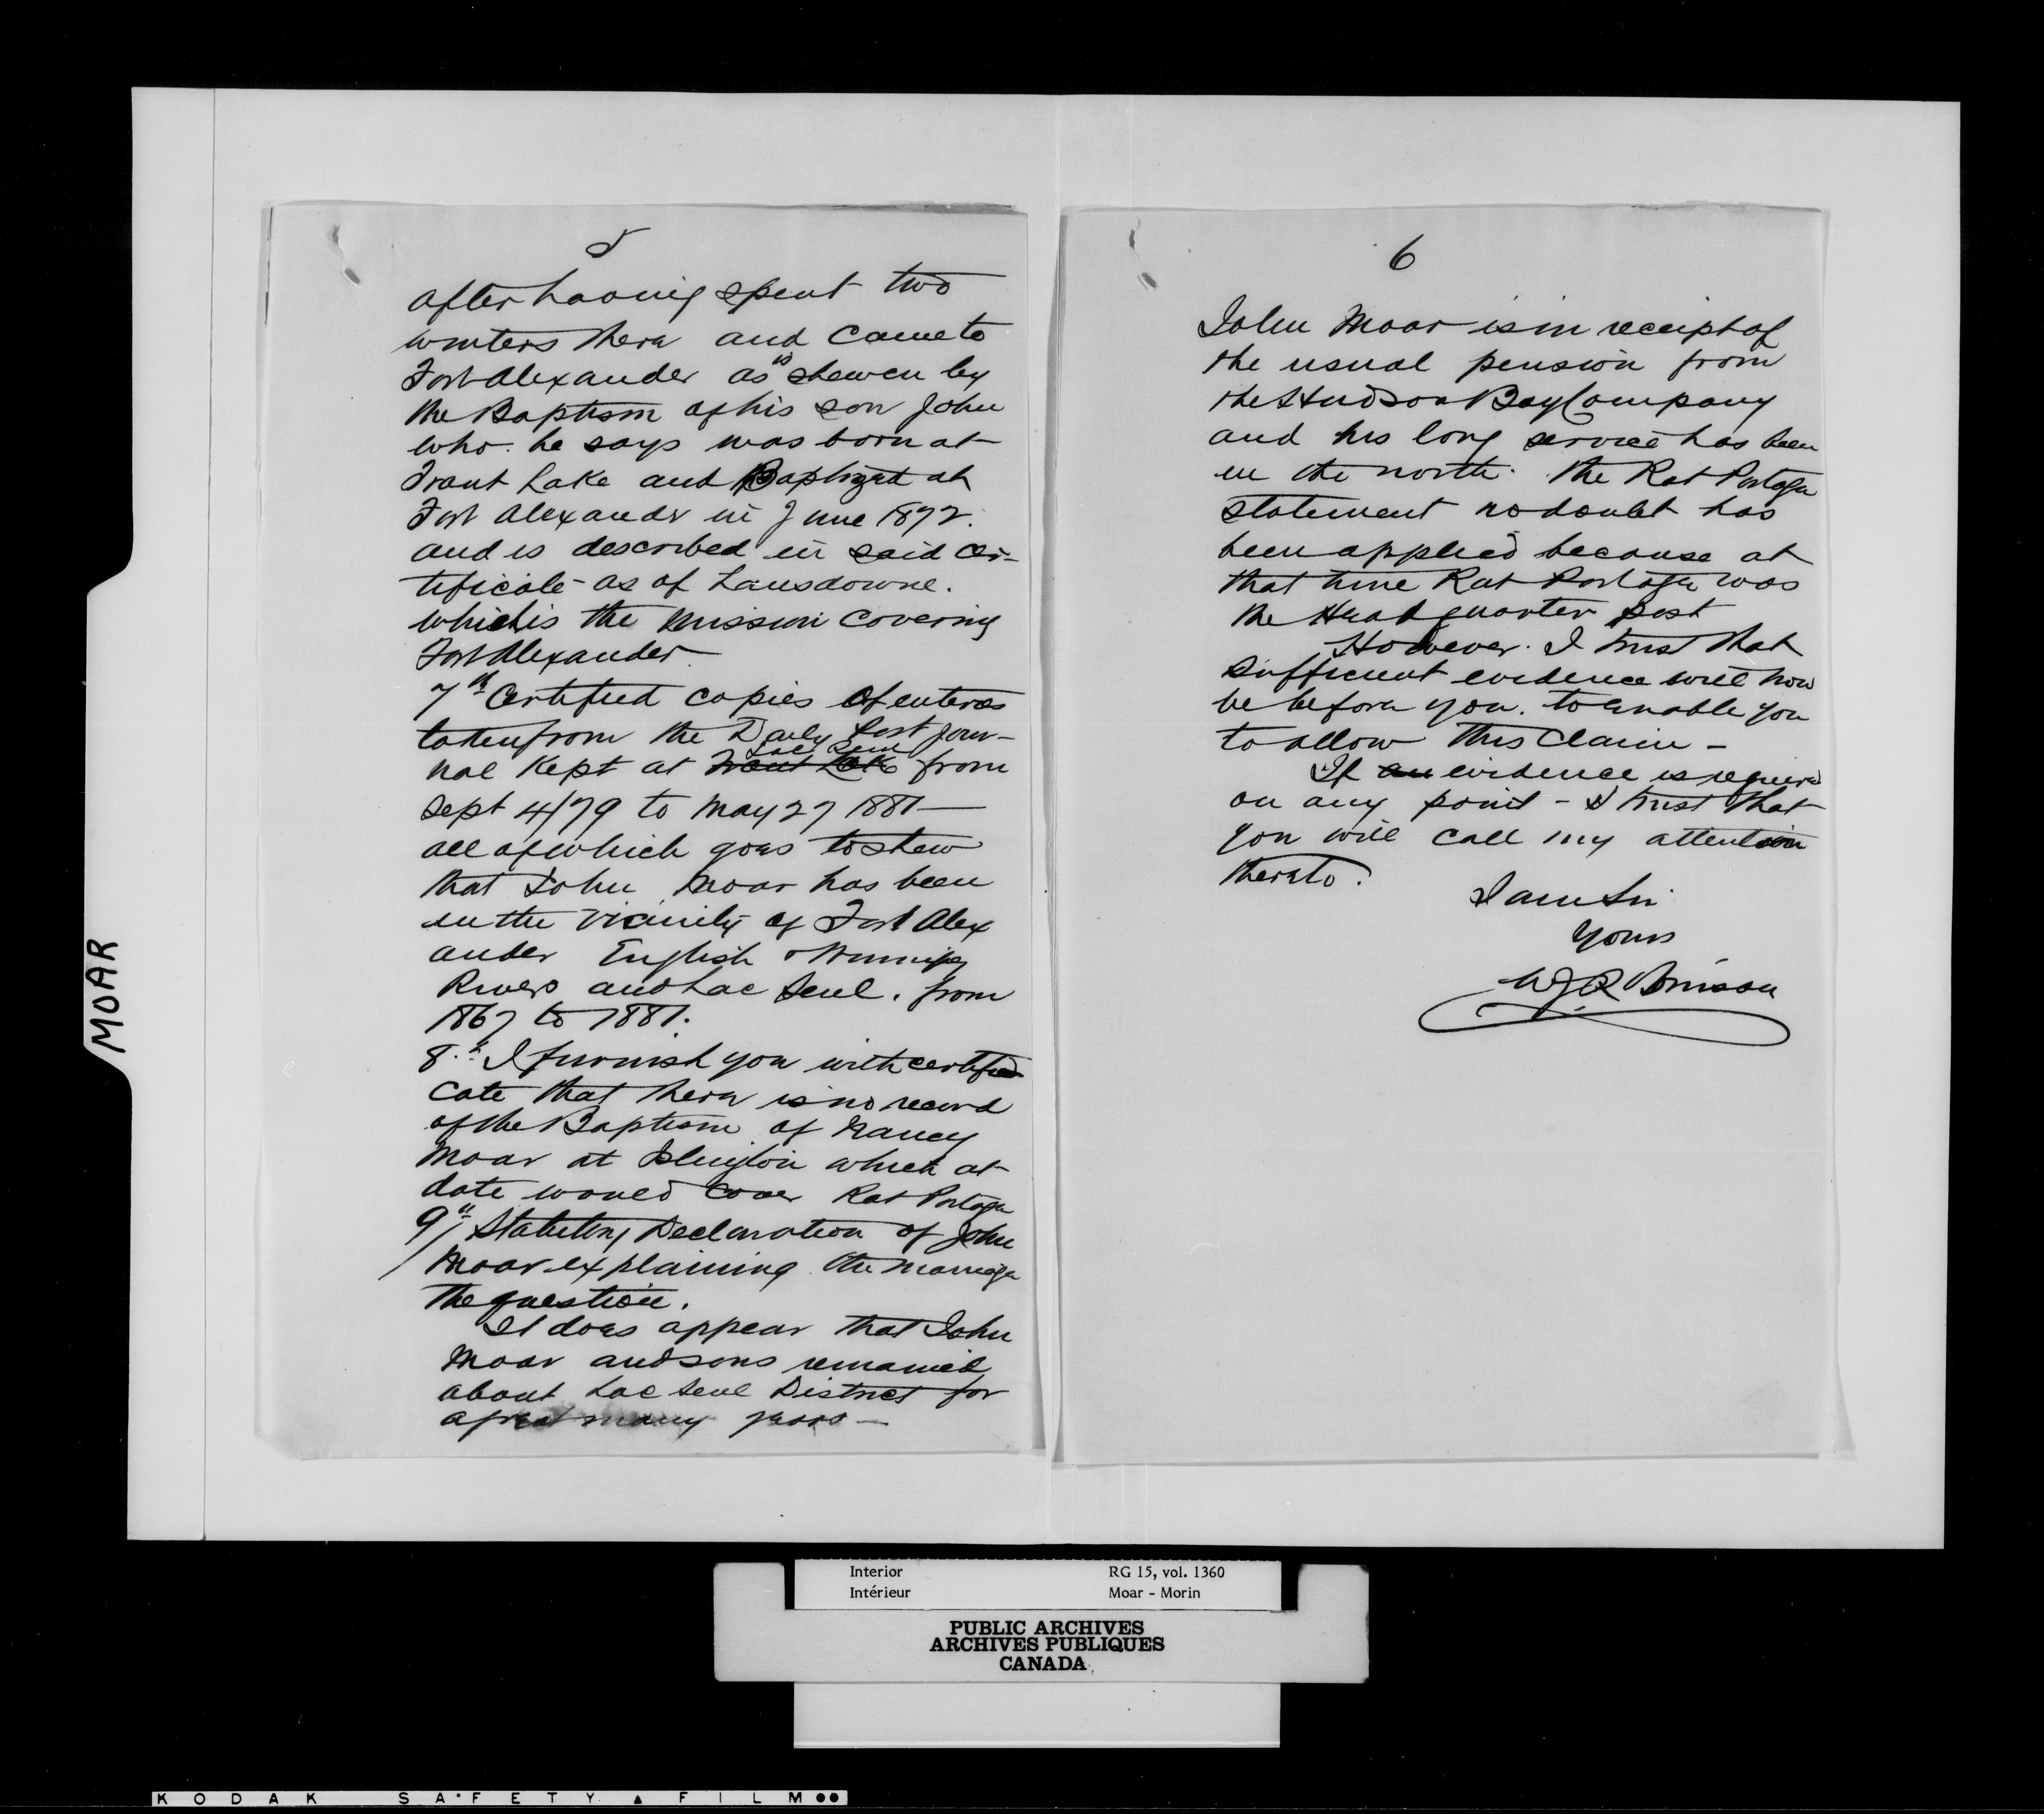 5
after having spent two
winters there and came to
Fort Alexander as is shewen by
the Baptism of his son John
who he says was born at
Trout Lake and Baptized at
Fort Alexandr in June 1872.
and is described in said Cer-
tificate as of Lansdowne.
which is the Mission covering
Fort Alexander.
7th Certified copies of enteres
taken from the Daily Post Jour-
nal Kept at Trout Lake Lac Seul from
Sept 4/79 to May 27 1881—
all of which goes to shew
that John Moar has been
in the vicinity of Fort Alex
ander English & Winnipeg
Rivers and Lac Seul. from
1867 to 1881.
8.th I furnish you with certifi
cate that there is no record
of the Baptism of Nancy
Moar at Islington which at
date would cover Rat Portage
9th Statutory Declaration of John
Moar explaining the marriage
the question.
It does appear that John
Moar and sons remained
about Lac Seul District for
a great many years —
6
John Moar is in receipt of
the usual pension from
the Hudson Bay Company
and his long service has been
in the north. The Rat Portage
statement no doubt has
been applied because at
that time Rat Portage was
the Head quarter post
However. I trust that
sufficient evidence will now
be before you. to enable you
to allow this Claim -
If an evidence is required
on any point - I trust that
you will call my attention
thereto.
I am Sir
Yours
MOAR
Interior RG 15, vol. 1360
Intérieur Moar - Morin
PUBLIC ARCHIVES
ARCHIVES PUBLIQUES
CANADA
KODAK SAFETY FILM